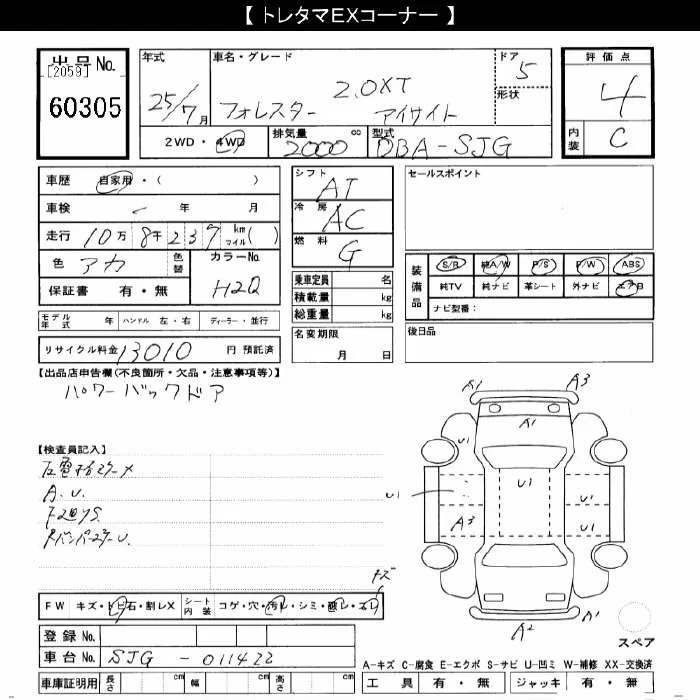 【 トレタマEXコーナー 】
出品No.
[2059]
60305
年式
25/7月
車名・グレード
2.0XT
フォレスター アイサイト
ドア
5
形状
2WD・4WD
排気量 cc
2000
型式
DBA-SJG
評価点
4
内装
C
車歴 自家用・( )
車検 年 月
走行 10万8千237 km マイル( )
色 アカ
色替
カラーNo.
H2Q
保証書 有・無
シフト
AT
冷房
AC
燃料
G
乗車定員 名
積載量 kg
総重量 kg
名変期限
月 日
セールスポイント
装備品
S/R 純A/W P/S P/W ABS
純TV 純ナビ 革シート 外ナビ エアB
ナビ型番:
後日品
モデル年式 年 ハンドル 左・右 ディーラー・並行
リサイクル料金 13010 円 預託済
【出品店申告欄(不良箇所・欠品・注意事項等)】
パワーバックドア
【検査員記入】
A.U.
A1 A3
A1
U1 U1
U1 U1
A3 U1
キズ
A2 A1
FW キズ・トビ石・割レX
シート内装 コゲ・穴・汚レ・シミ・破レ・スレ
登録No.
車台No. SJG - 011422
スペア
A-キズ C-腐食 E-エクボ S-サビ U-凹ミ W-補修 XX-交換済
車庫証明用 長さ cm 幅 cm 高さ cm
工具 有・無 ジャッキ 有・無